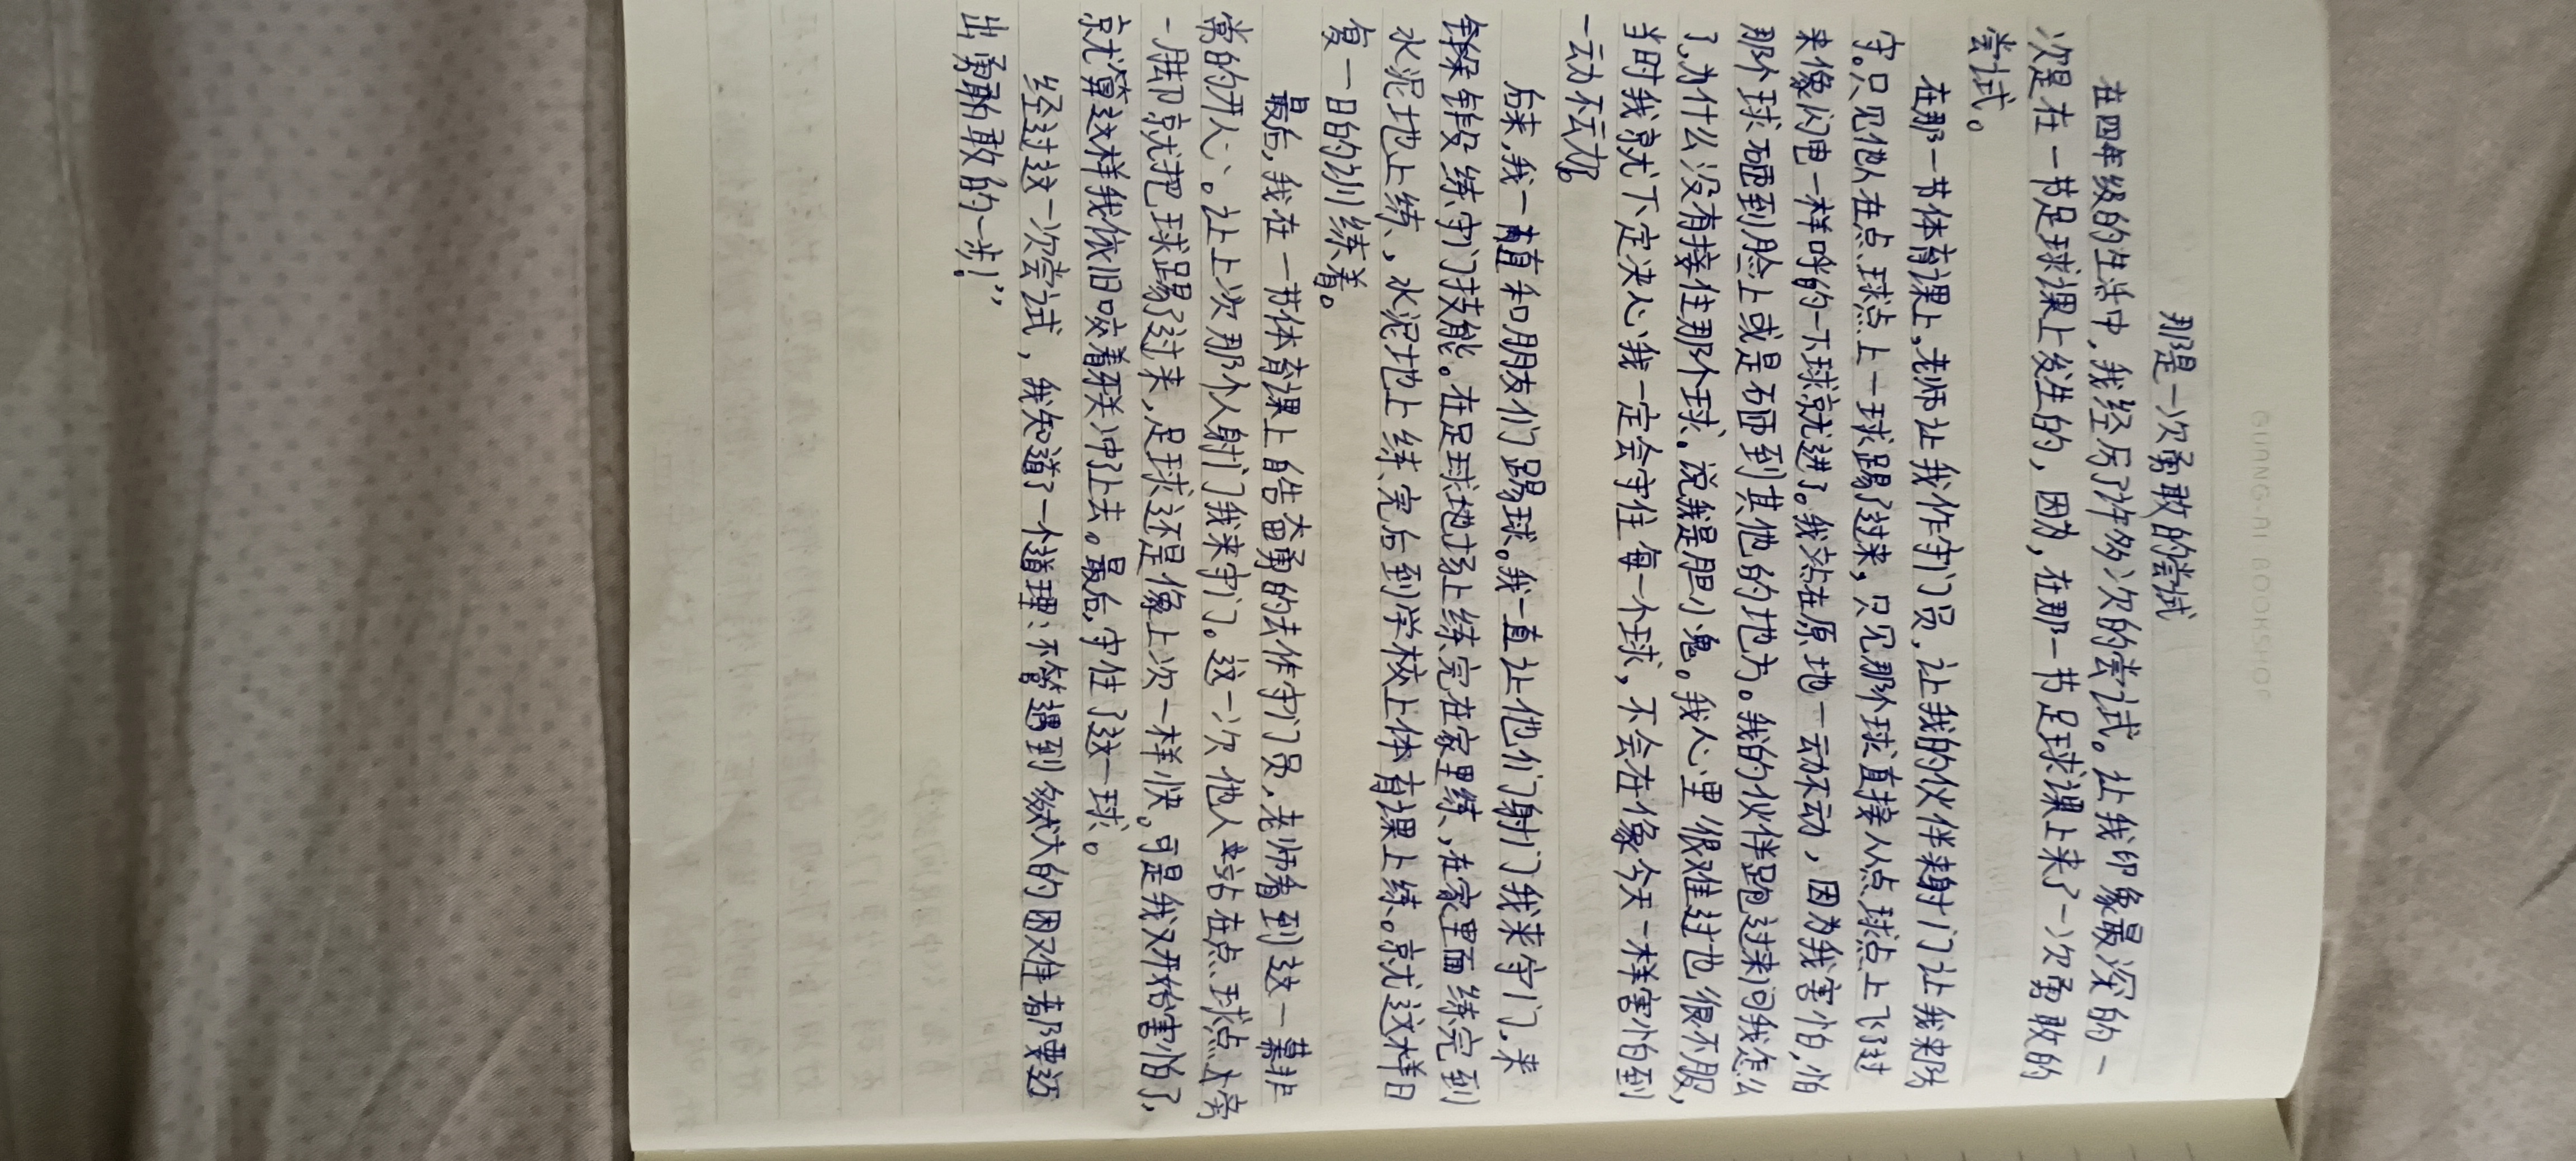 GUANG AI BOOKSHOP
那是一次勇敢的尝试
在四年级的生活中,我经历了许多次的尝试。让我印象最深的一
次是在一节足球课上发生的,因为,在那一节足球课上来了一次勇敢的
尝试。
在那一节体育课上,老师让我作守门员,让我的伙伴来射门让我来防
守。只见他从在点球点上一球踢了过来,只见那个球直接从点球点上飞了过
来像闪电一样呼的一下球就进了。我站在原地一动不动,因为我害怕,怕
那个球砸到脸上或是砸到其他的地方。我的伙伴跑过来问我怎么
了,为什么没有接住那个球。说我是胆小鬼。我心里很难过也很不服,
当时我就下定决心我一定会守住每一个球,不会在像今天一样害怕到
一动不动。
后来,我一直和朋友们踢球。我一直让他们射门我来守门,来
锻练守门技能。在足球场上练完在家里练,在家里面练完到
水泥地上练,水泥地上练完后到学校上体育课上练。就这样日
复一日的训练着。
最后,我在一节体育课上自告奋勇的去作守门员,老师看到这一幕非
常的开心。让上次那个人射门我来守门。这一次他人站在点球点上旁
一脚就把球踢了过来,足球还是像上次一样快。可是我又开始害怕了,
就算这样我依旧咬着牙关冲了上去。最后,守住了这一球。
经过这一次尝试,我知道了一个道理:不管遇到多大的困难都要迈
出勇敢的一步!”